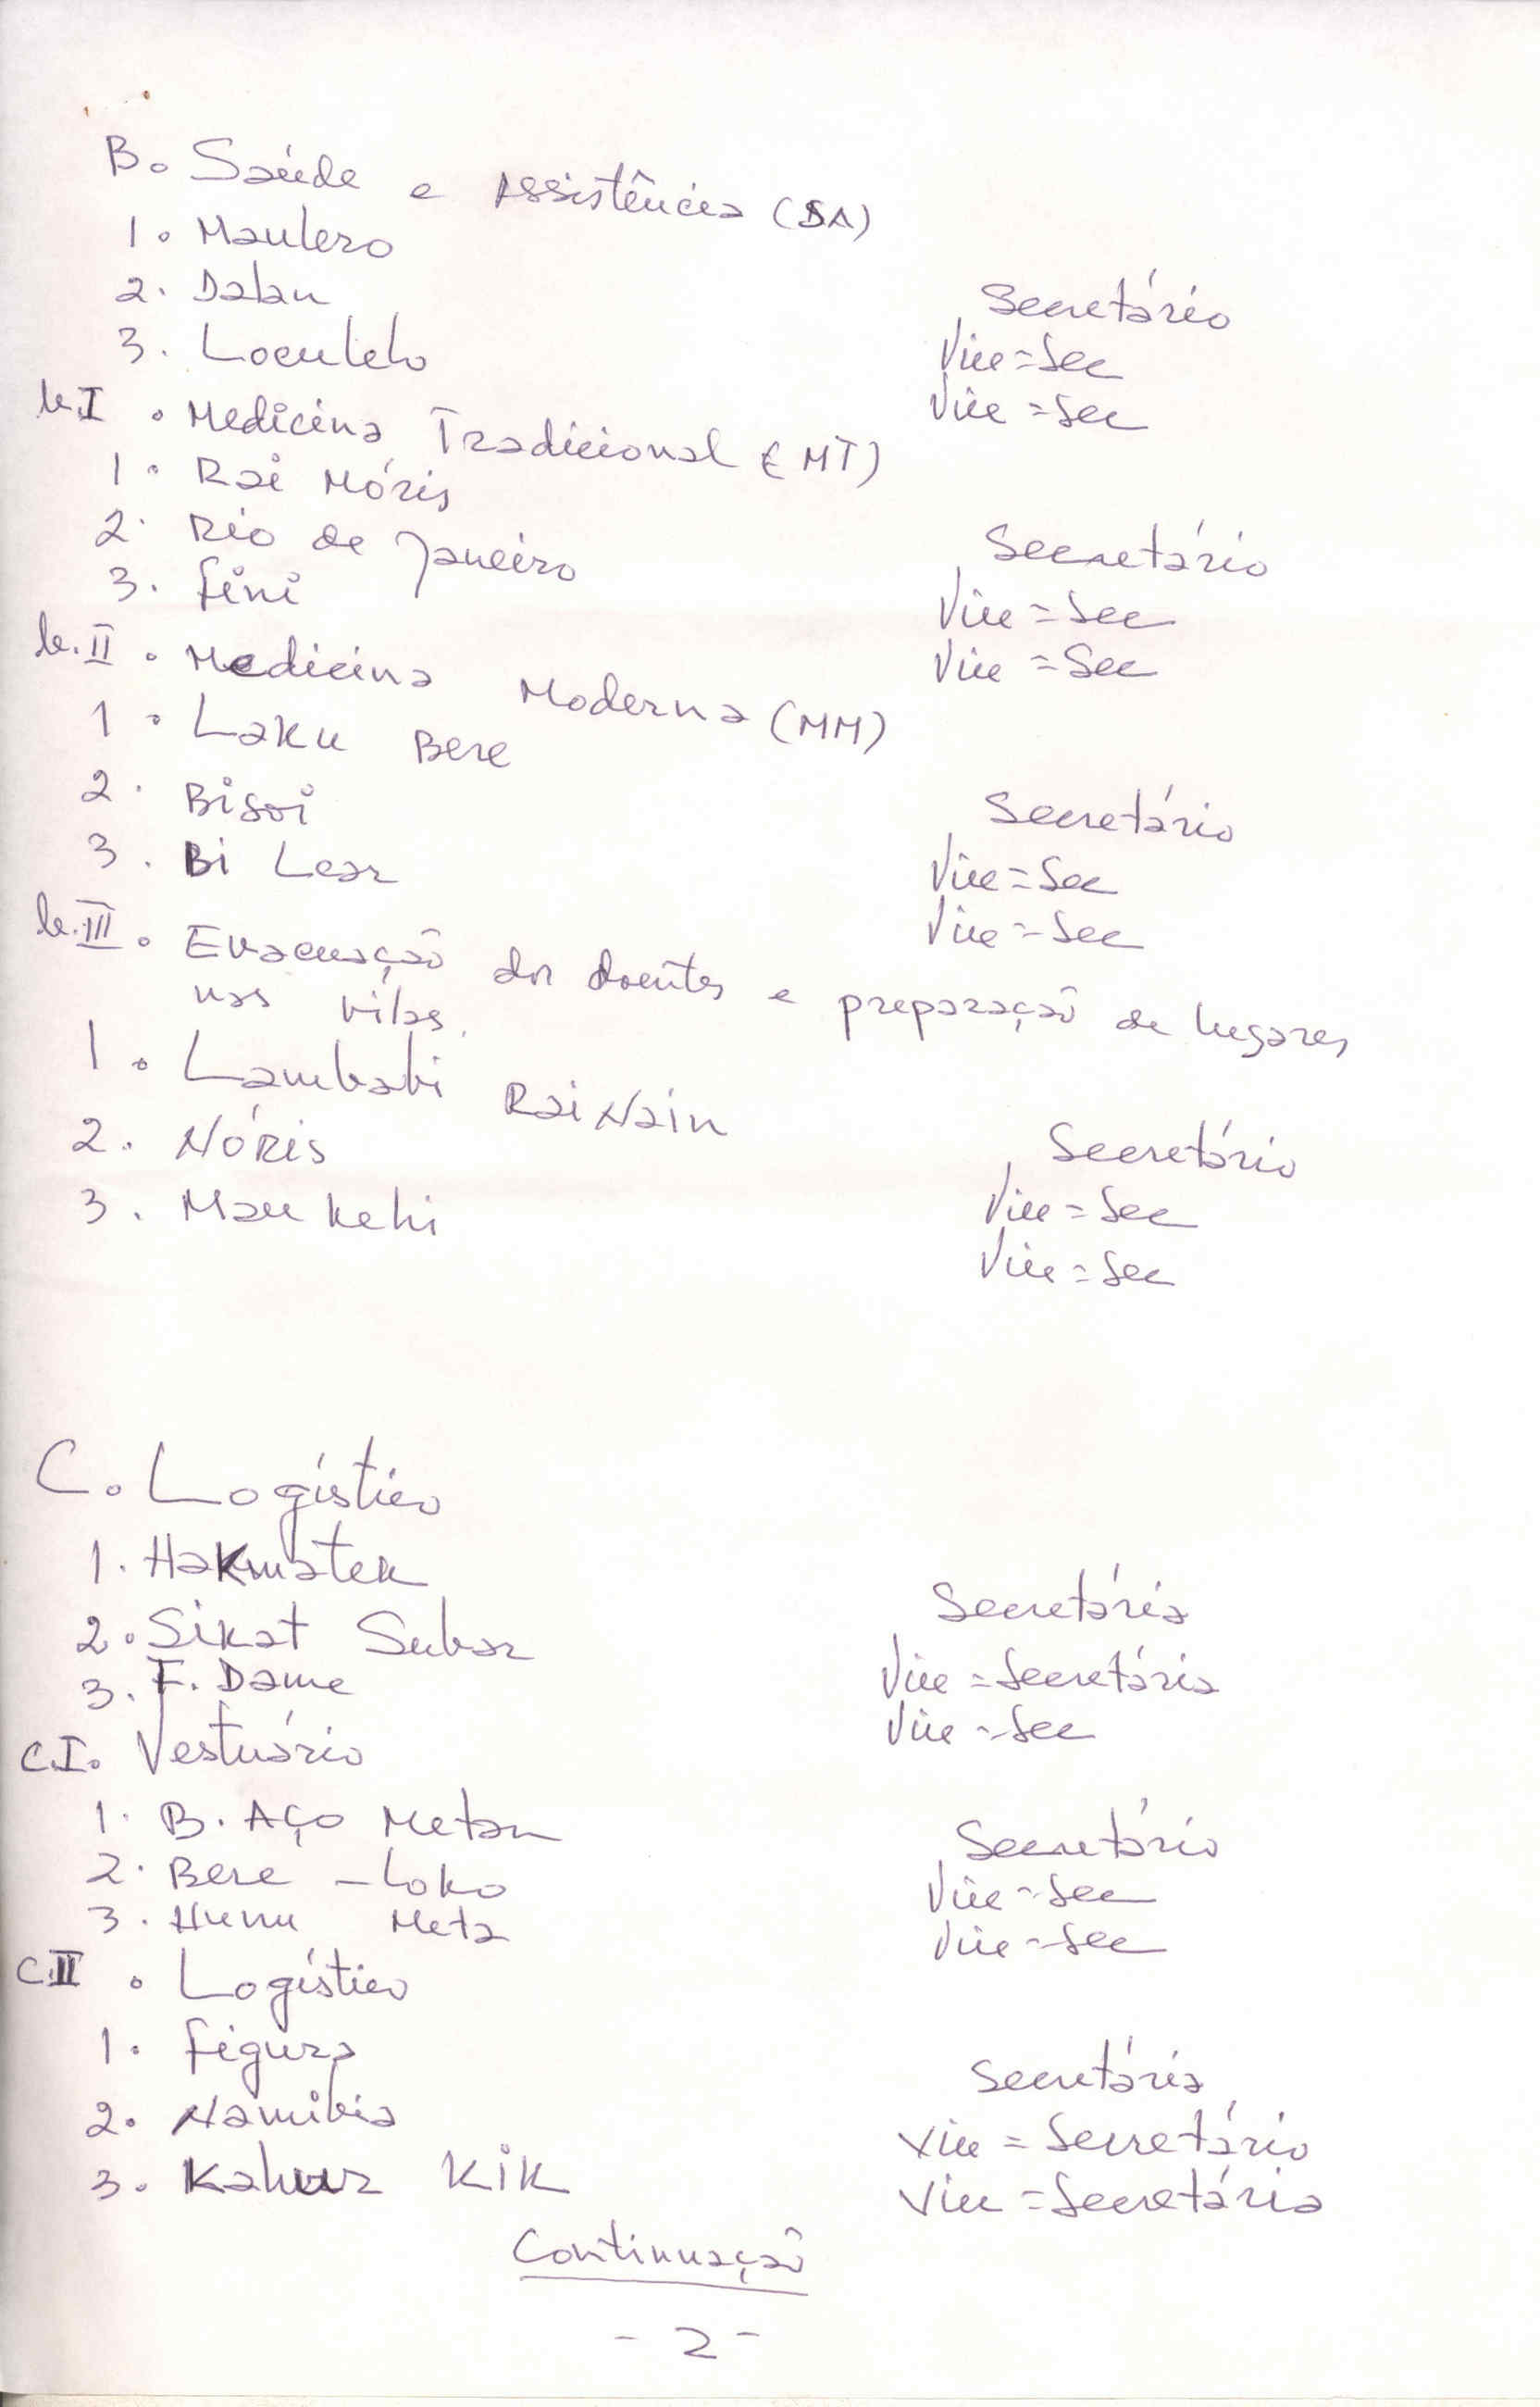 B. Saúde e Assistência (SA)
1. Maulero Secretário
2. Dalan Vice=Sec
3. Loculelo Vice=Sec
b.I. Medicina Tradicional (MT)
1. Rai Móris Secretário
2. Rio de Janeiro Vice=Sec
3. Fini Vice=Sec
b.II. Medicina Moderna (MM)
1. Laku Bere Secretário
2. Bisoi Vice=Sec
3. Bi Lear Vice=Sec
b.III. Evacuação dos doentes e preparação de lugares
nas vilas.
1. Lambabi RaiNain Secretário
2. Nóris Vice=Sec
3. Mau kehi Vice=Sec
C. Logístico
1. Hakmatek Secretária
2. Sikat Subar Vice=Secretária
3. F. Dame Vice=Sec
C.I. Vestuário
1. B. Aço Metan Secretário
2. Bere-Loko Vice=Sec
3. Hunu Meta Vice=Sec
C.II. Logístico
1. Figura Secretária
2. Namibia Vice=Secretário
3. Kik Vice=Secretária
Continuação
-2-